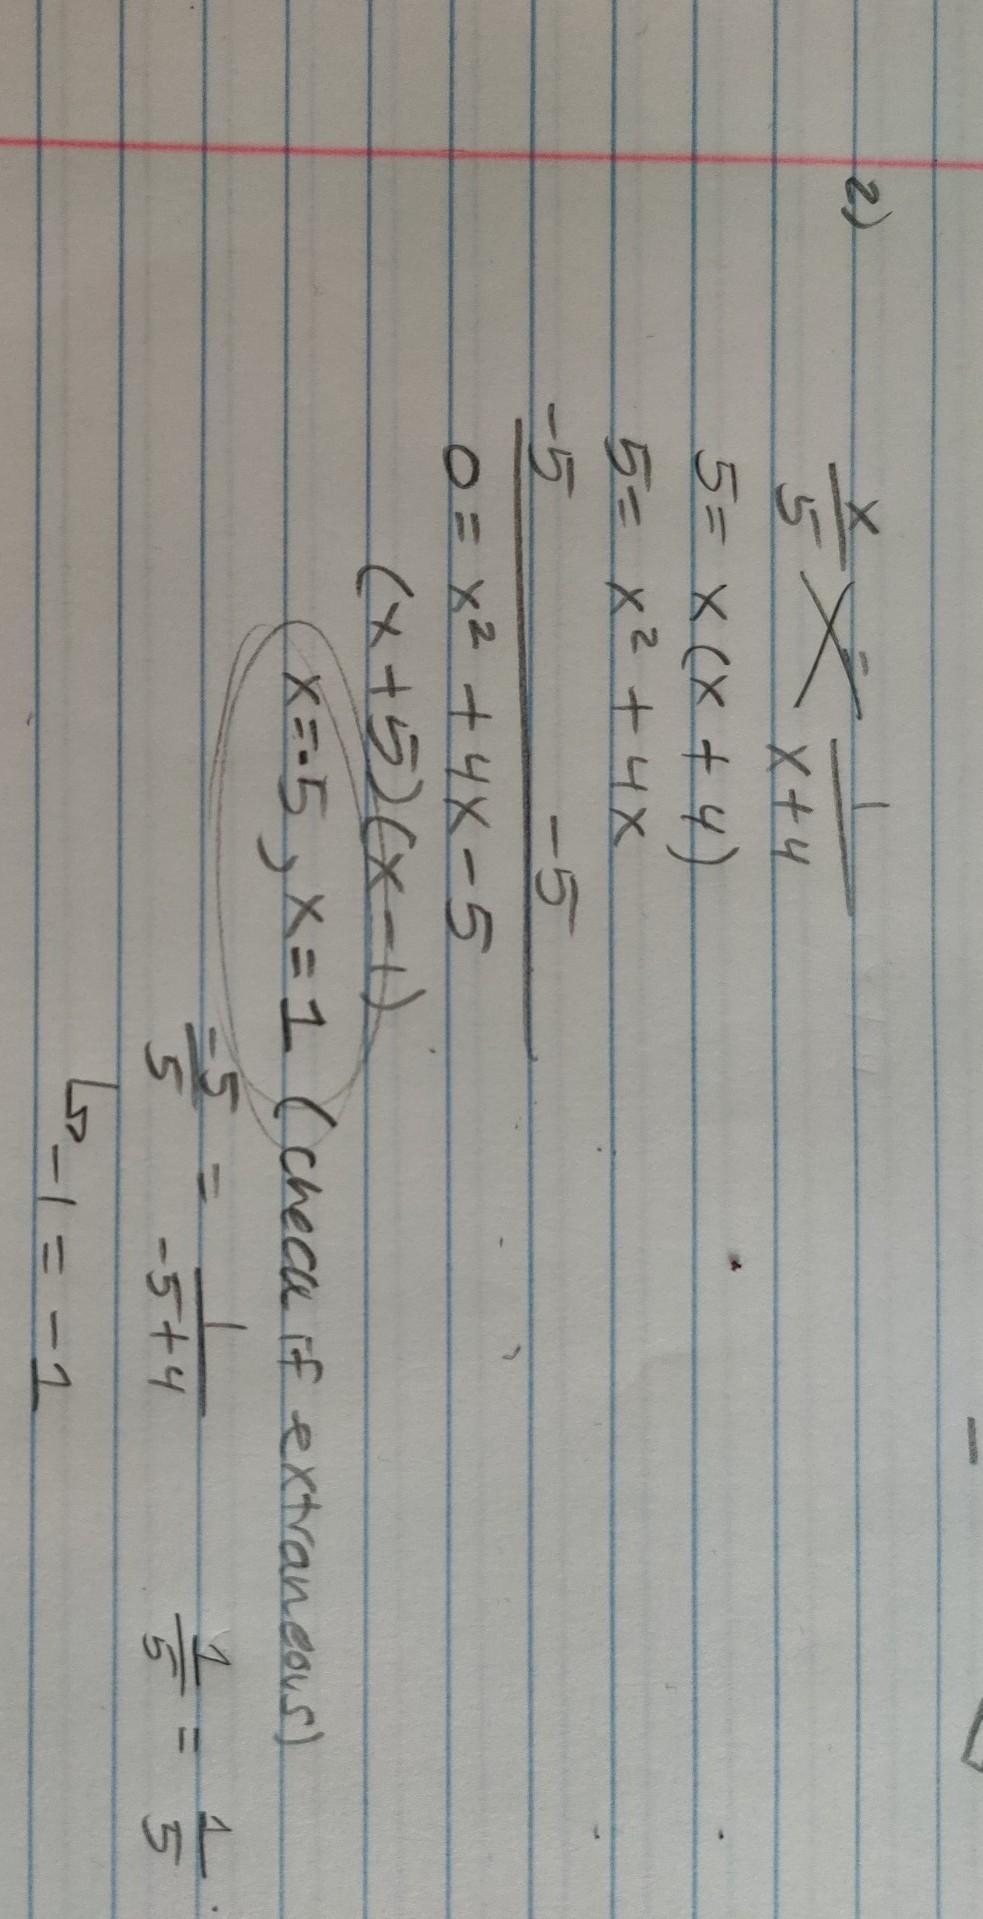 2)
x/5 = 1/(x+4)
5 = x(x + 4)
5 = x² + 4x
-5 -5
0 = x² + 4x - 5
(x + 5)(x - 1)
x = -5, x = 1 (check if extraneous)
-5/5 = 1/(-5+4) 1/5 = 1/5
↳ -1 = -1